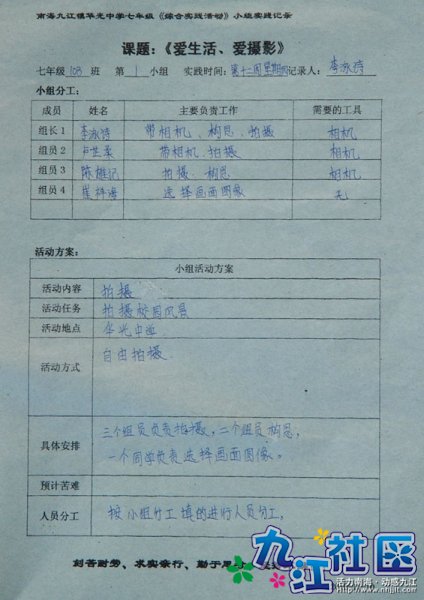 南海九江镇华光中学七年级《综合实践活动》小组实践记录
课题：《爱生活、爱摄影》
七年级 103 班 第 1 小组 实践时间：第十二周星期四 记录人：李泳诗
小组分工：
成员 姓名 主要负责工作 需要的工具
组长1 李泳诗 带相机、构思、拍摄 相机
组员2 卢世柔 带相机、拍摄 相机
组员3 陈 记 拍摄、构思 相机
组员4 海 选择画面图像 无
活动方案：
小组活动方案
活动内容 拍摄
活动任务 拍摄校园风景
活动地点 华光中学
活动方式 自由拍摄
具体安排 三个组员负责拍摄，二个组员构思，
一个同学负责选择画面图像。
预计苦难
人员分工 按小组分工填的进行人员分工。
刻苦耐劳、求实亲行、勤于思
九江社区
活力南海·动感九江
http://www.nhjjlt.com